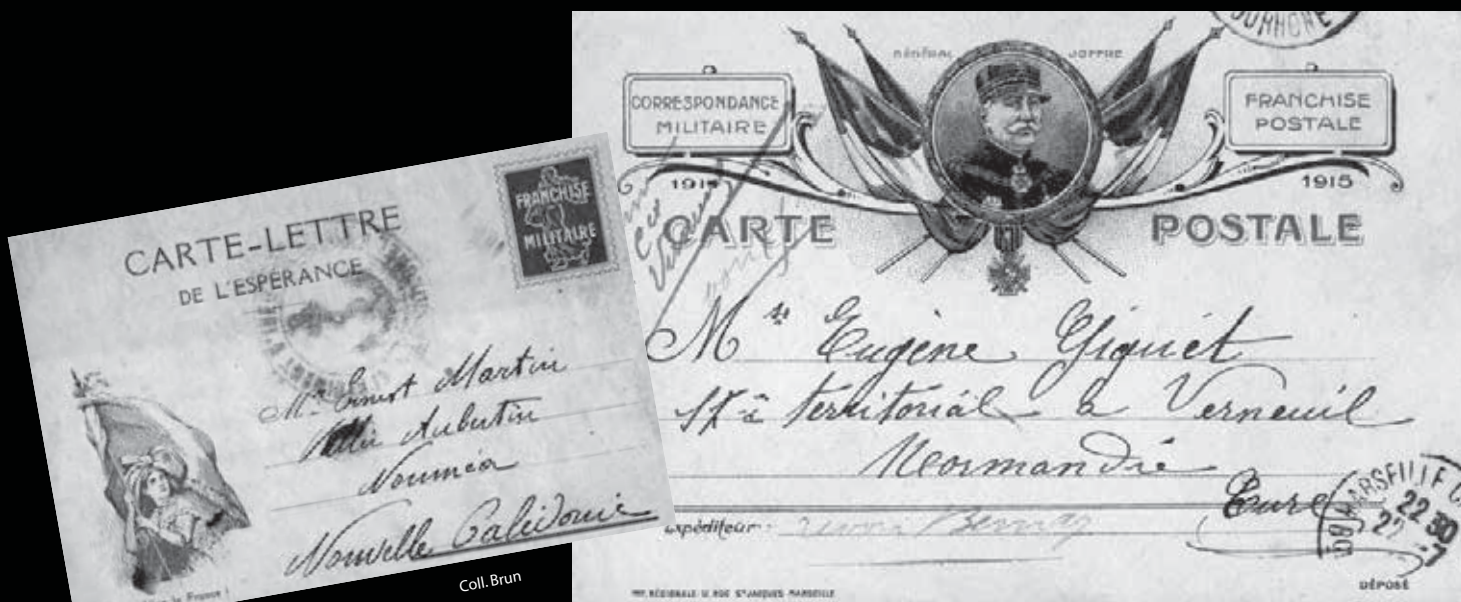 CARTE-LETTRE
DE L'ESPÉRANCE
FRANCHISE
MILITAIRE
Mr Ernest Martin
Aubertin
Nouméa
Nouvelle Calédonie
Vive la France !
Coll. Brun
GÉNÉRAL JOFFRE
CORRESPONDANCE
MILITAIRE
FRANCHISE
POSTALE
191
1915
CARTE POSTALE
Mr Eugène Giguet
territorial a Verneuil
Normandie
Eure
Expéditeur :
MARSEILLE
22 30
22 -7
IMP. RÉGIONALE RUE St JACQUES MARSEILLE
DÉPOSÉ